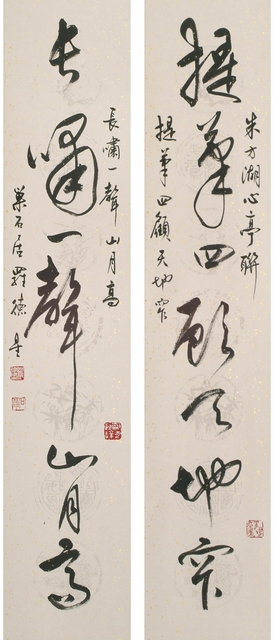 提筆四顧天地窄
朱方湖心亭聯
提筆四顧天地窄
長嘯一聲山月高
長嘯一聲山月高
巢石居羅德星